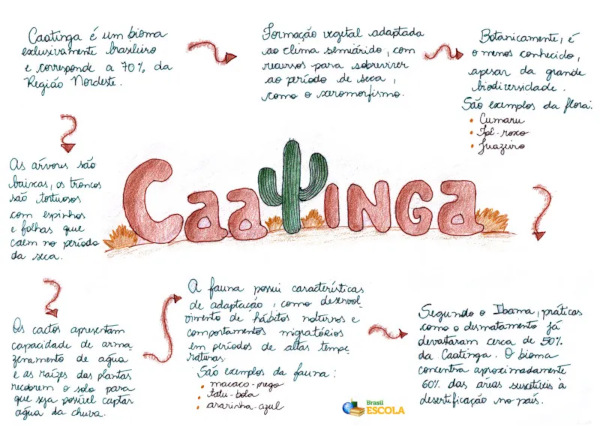 Caatinga é um bioma
exclusivamente brasileiro
e corresponde a 70% da
Região Nordeste.
Formação vegetal adaptada
ao clima semiárido, com
recursos para sobreviver
ao período de seca,
como o xeromorfismo.
Botanicamente, é
o menos conhecido,
apesar da grande
biodiversidade.
São exemplos da flora:
• Cumaru
• Ipê-roxo
• Juazeiro
As árvores são
baixas, os troncos
são tortuosos
com espinhos
e folhas que
caem no período
da seca.
CaaTINGa
Os cactos apresentam
capacidade de arma
zenamento de água
e as raízes das plantas
recobrem o solo para
que seja possível captar
água da chuva.
A fauna possui características
de adaptação, como desenvol-
vimento de hábitos noturnos e
comportamentos migratórios
em períodos de altas tempe-
raturas.
São exemplos da fauna:
• macaco-prego
• tatu-bola
• ararinha-azul
Segundo o Ibama, práticas
como o desmatamento já
devastaram cerca de 50%
da Caatinga. O bioma
concentra aproximadamente
60% das áreas suscetíveis à
desertificação no país.
Brasil
ESCOLA